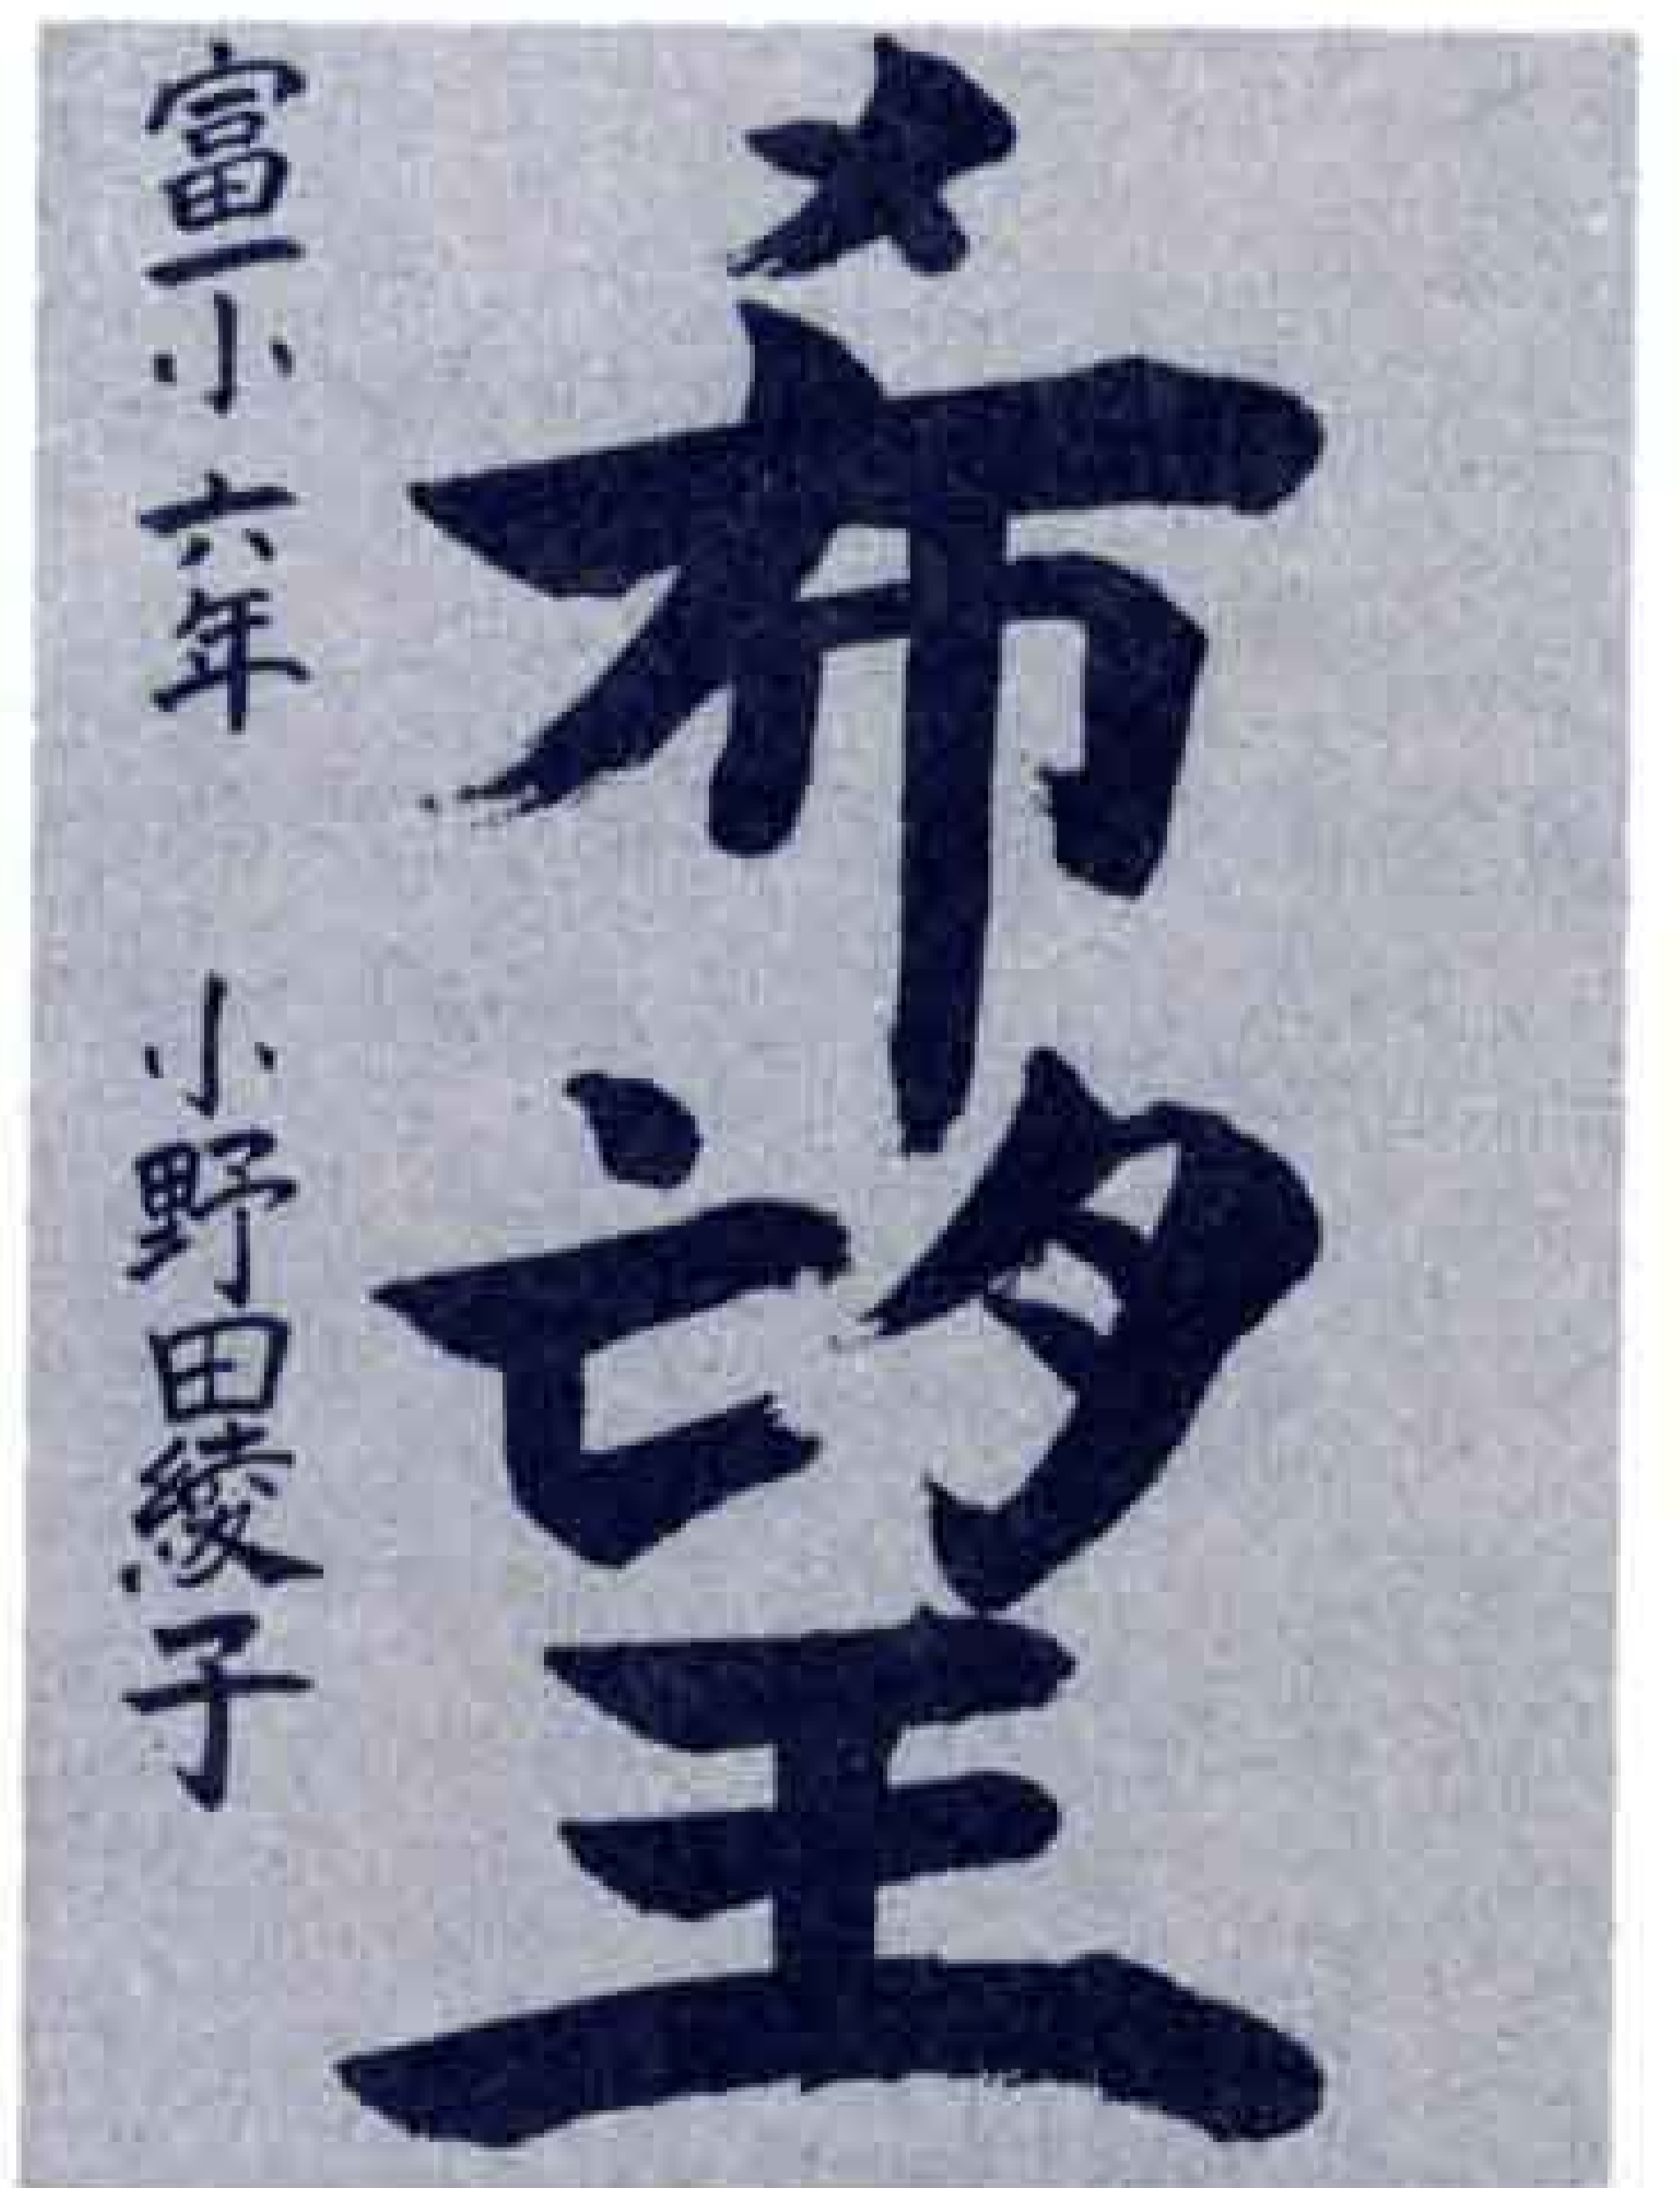 希望
富一小 六年 小野田綾子